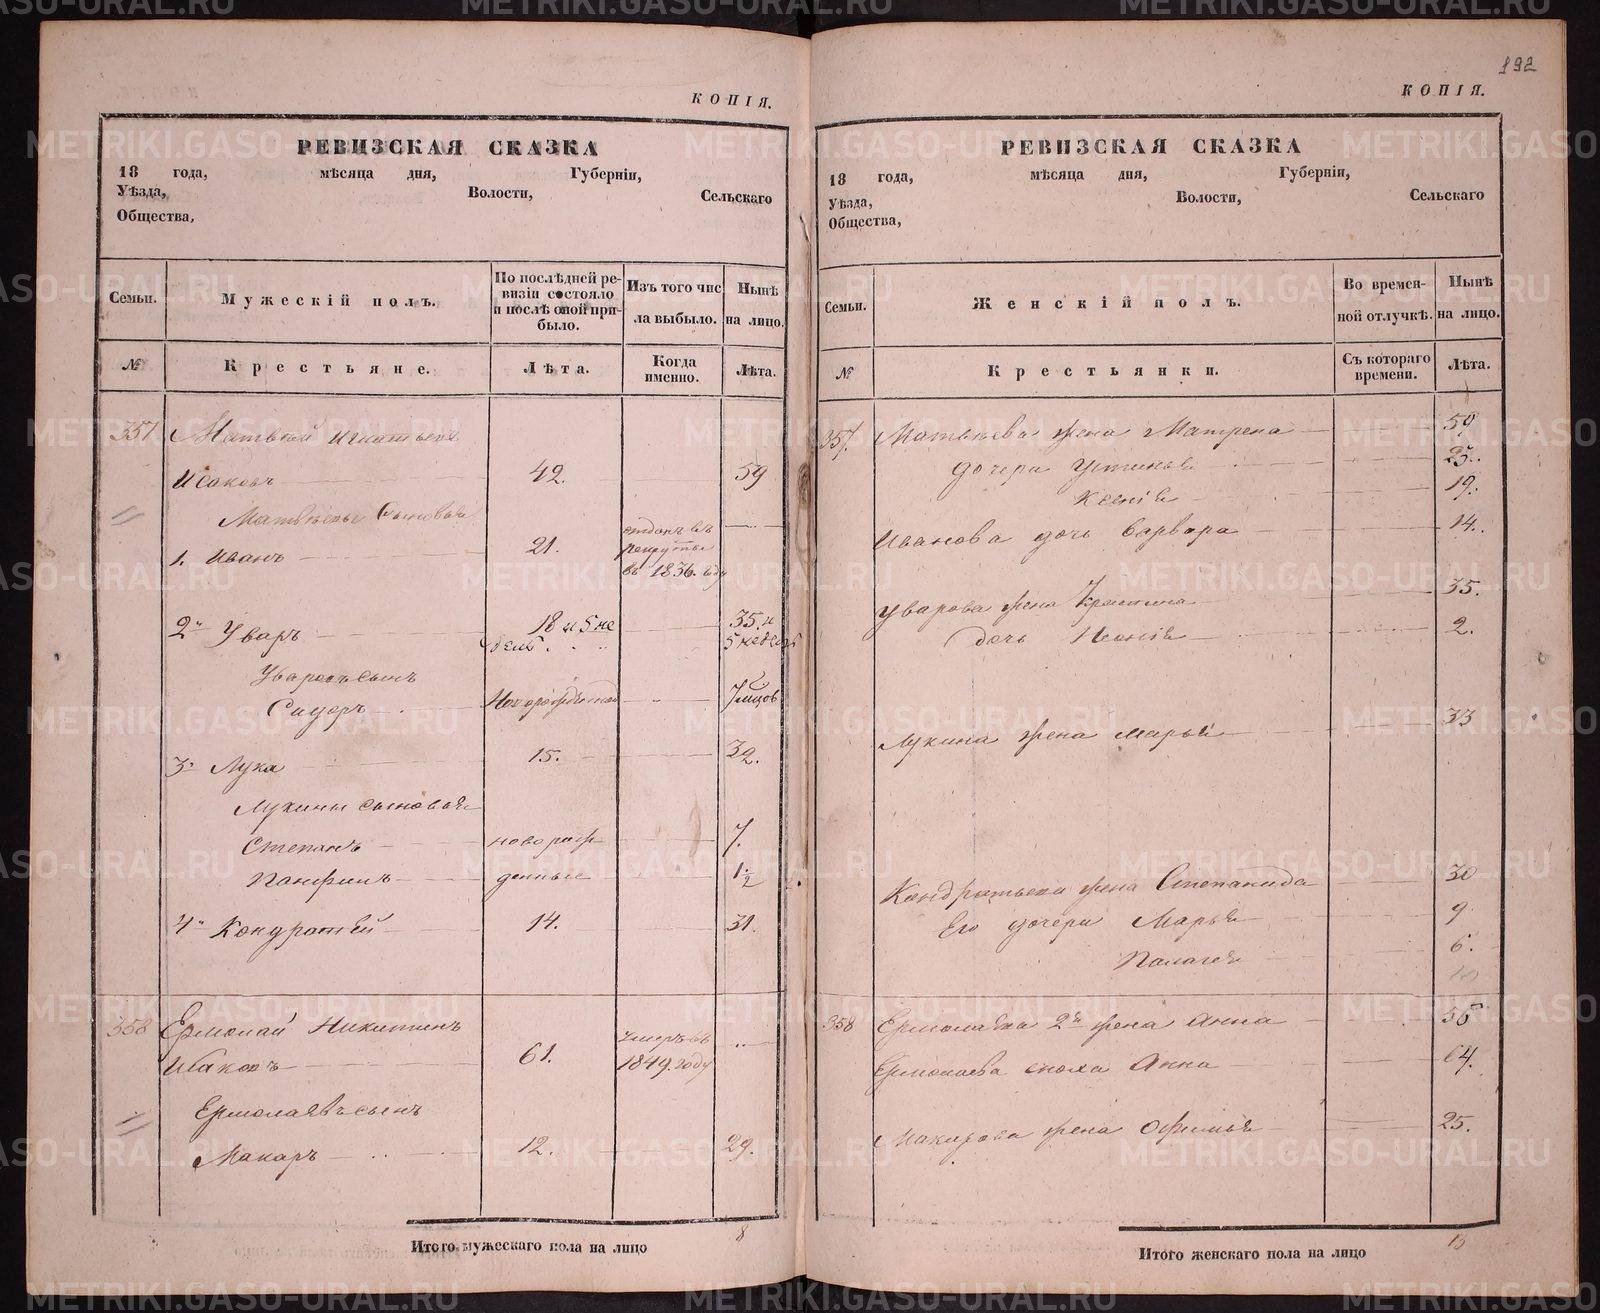 192
КОПІЯ.
РЕВИЗСКАЯ СКАЗКА
18 года, мѣсяца дня, Губерніи,
Уѣзда, Волости, Сельскаго
Общества,
Семьи. Мужескій полъ. По послѣдней ревизіи состояло и послѣ оной прибыло. Изъ того числа выбыло. Нынѣ на лицо.
№ Крестьяне. Лѣта. Когда именно. Лѣта.
357 Матвѣй Игнатьевъ
Исаковъ 42. 59
Матвѣевы сыновья
1. Иванъ 21. отданъ въ рекруты въ 1836. году
2. Уваръ 18 и 5 недель 35. и 5 недель
Уваровъ сынъ
Сидоръ Новорожденной 7 мцов
3. Лука 15. 32.
Лукины сыновья
Степанъ новорож 7.
Панфилъ денные 1 1/2
4. Кондратей 14. 31.
358 Ермолай Никитинъ
Исаковъ 61. умеръ въ 1849. году
Ермолаявъ сынъ
Макаръ 12. 29.
Итого мужескаго пола на лицо 8
КОПІЯ.
РЕВИЗСКАЯ СКАЗКА
18 года, мѣсяца дня, Губерніи,
Уѣзда, Волости, Сельскаго
Общества,
Семьи. Женскій полъ. Во временной отлучкѣ. Нынѣ на лицо.
№ Крестьянки. Съ котораго времени. Лѣта.
357. Матвѣева жена Матрена 59
дочери Устинья 25.
Ксенія 19.
Иванова дочь Варвара 14.
Уварова жена 35.
дочь 2.
Лукина жена Марья 33
Кондратьева жена Степанида 30
Его дочери Марья 9
Палагея 6.
10
358 Ермолаева 2я жена Анна 56
Ермолаева сноха Анна 64.
Макарова жена Офимья 25.
Итого женскаго пола на лицо 13
METRIKI.GASO-URAL.RU